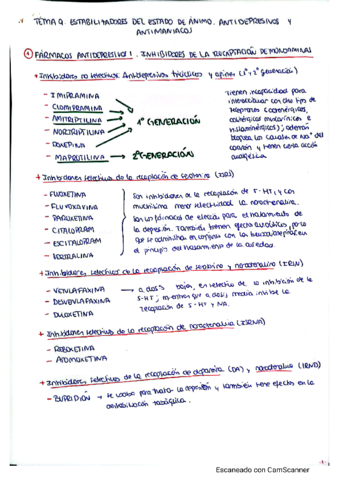 TEMA 9. ESTABILIZADORES DEL ESTADO DE ÁNIMO. ANTIDEPRESIVOS Y
ANTIMANIACOS
① FÁRMACOS ANTIDEPRESIVOS: INHIBIDORES DE LA RECAPTACIÓN DE MONOAMINAS
+ Inhibidores no selectivos. Antidepresivos tricíclicos y afines (1ª y 2ª generación)
- IMIPRAMINA
- CLOMIPRAMINA
- AMITRIPTILINA
- NORTRIPTILINA
- DOXEPINA
- MAPROTILINA
1ª GENERACIÓN
2ª GENERACIÓN
Tienen incapacidad para
interaccionar con otro tipo de
receptores (colinérgicos,
histaminérgicos); además
bloquea los canales de Na⁺ del
corazón y tienen cierta acción
+ Inhibidores selectivos de la recaptación de serotonina (ISRS)
- FLUOXETINA
- FLUVOXAMINA
- PAROXETINA
- CITALOPRAM
- ESCITALOPRAM
- SERTRALINA
Son inhibidores de la recaptación de 5-HT, y con
muchísima menor selectividad la noradrenalina.
Son los fármacos de elección para el tratamiento de
la depresión. También tienen efecto ansiolítico, por lo
que se administra en conjunto con las benzodiacepinas en
el principio del tratamiento de la ansiedad.
+ Inhibidores selectivos de la recaptación de serotonina y noradrenalina (IRSN)
- VENLAFAXINA
- DESVENLAFAXINA
- DULOXETINA
a dosis bajas, es selectivo de la inhibición de la
5-HT; mientras que a dosis media inhibe la
recaptación de 5-HT y NA.
+ Inhibidores selectivos de la recaptación de noradrenalina (ISRNA)
- REBOXETINA
- ATOMOXETINA
+ Inhibidores selectivos de la recaptación de dopamina (DA) y noradrenalina (IRND)
- BUPROPIÓN → se utiliza para tratar la depresión y también tiene efectos en la
deshabituación tabáquica.
Escaneado con CamScanner